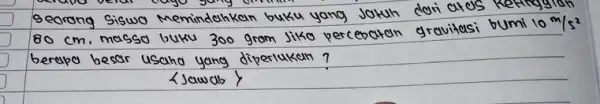 Seorang Siswa memindahkan buku yang Jatuh dari atas Ketinggian
80 cm, massa buku 300 gram Jika percepatan gravitasi bumi 10 m/s²
berapa besar usaha yang diperlukan ?
< Jawab >